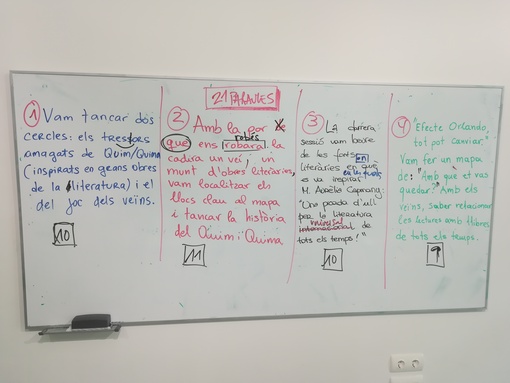 21 PARAULES
1 Vam tancar dos
cercles: els tresors
amagats de Quim/Quima
(inspirats en grans obres
de la literatura) i el
del joc dels veïns.
10
2 Amb la por
que ens robés
robaral la
cadira un veí, i un
munt d'obres literàries,
vam localitzar els
llocs clau al mapa
i tancar la història
del Quim i Quima
11
3 La darrera
sessió vam beure
de les fonts
literàries en què
es va inspirar
M. Aurèlia Capmany:
"Una parada d'ull
per la literatura
universal
internacional de
tots els temps!"
10
4 "Efecte Orlando,
tot pot canviar"
Vam fer un mapa
de: "Amb què et vas
quedar?" Amb els
veïns, saber relacionar
les lectures amb llibres
de tots els temps.
9